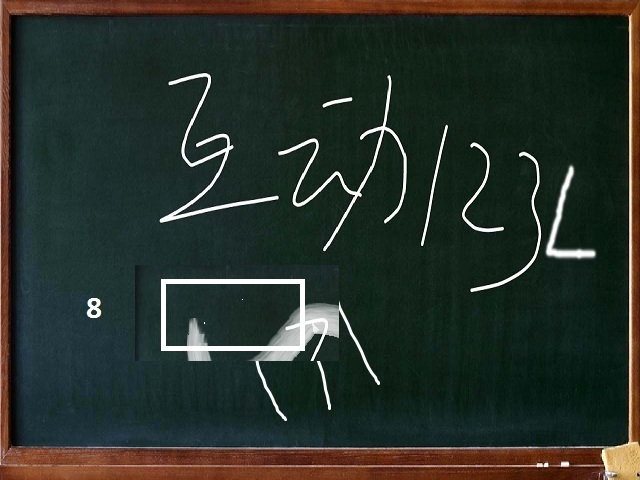 互动123L
8